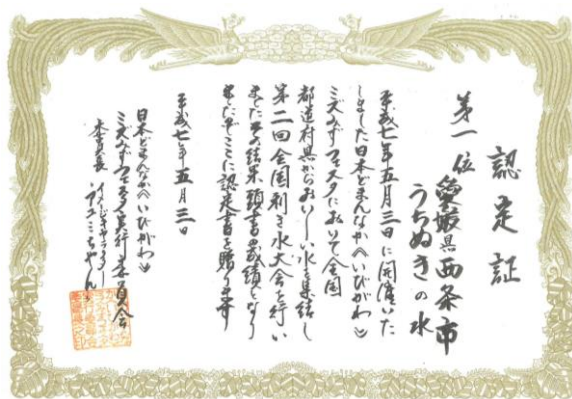 認定証
第一位
愛媛県西条市
うちぬきの水
平成七年五月三日に開催いた
しました日本どまんなかへいびがわ
ミズみずフェスタにおいて全国
都道村県からおいしい水を集結し
第二回全国利き水大会を行い
ましたその結果頭書の成績となり
ましたでここに認定書を贈ります
平成七年五月三日
日本どまんなかへいびがわ
ミズみずフェスタ実行委員会